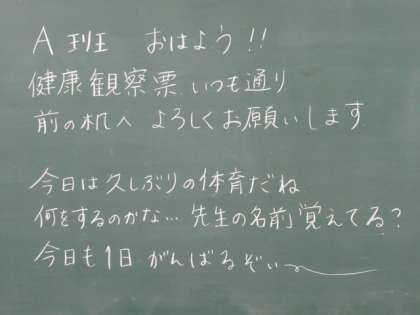 A 班 おはよう!!
健康観察票 いつも通り
前の机へ よろしくお願いします
今日は久しぶりの体育だね
何をするのかな… 先生の名前覚えてる?
今日も1日 がんばるぞぃ〜